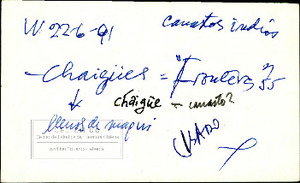 W 22-6-91 canastos indios
- Chaigües = "Frontera" 35
chaigüe - canasto?
llenos de maqui
USADO